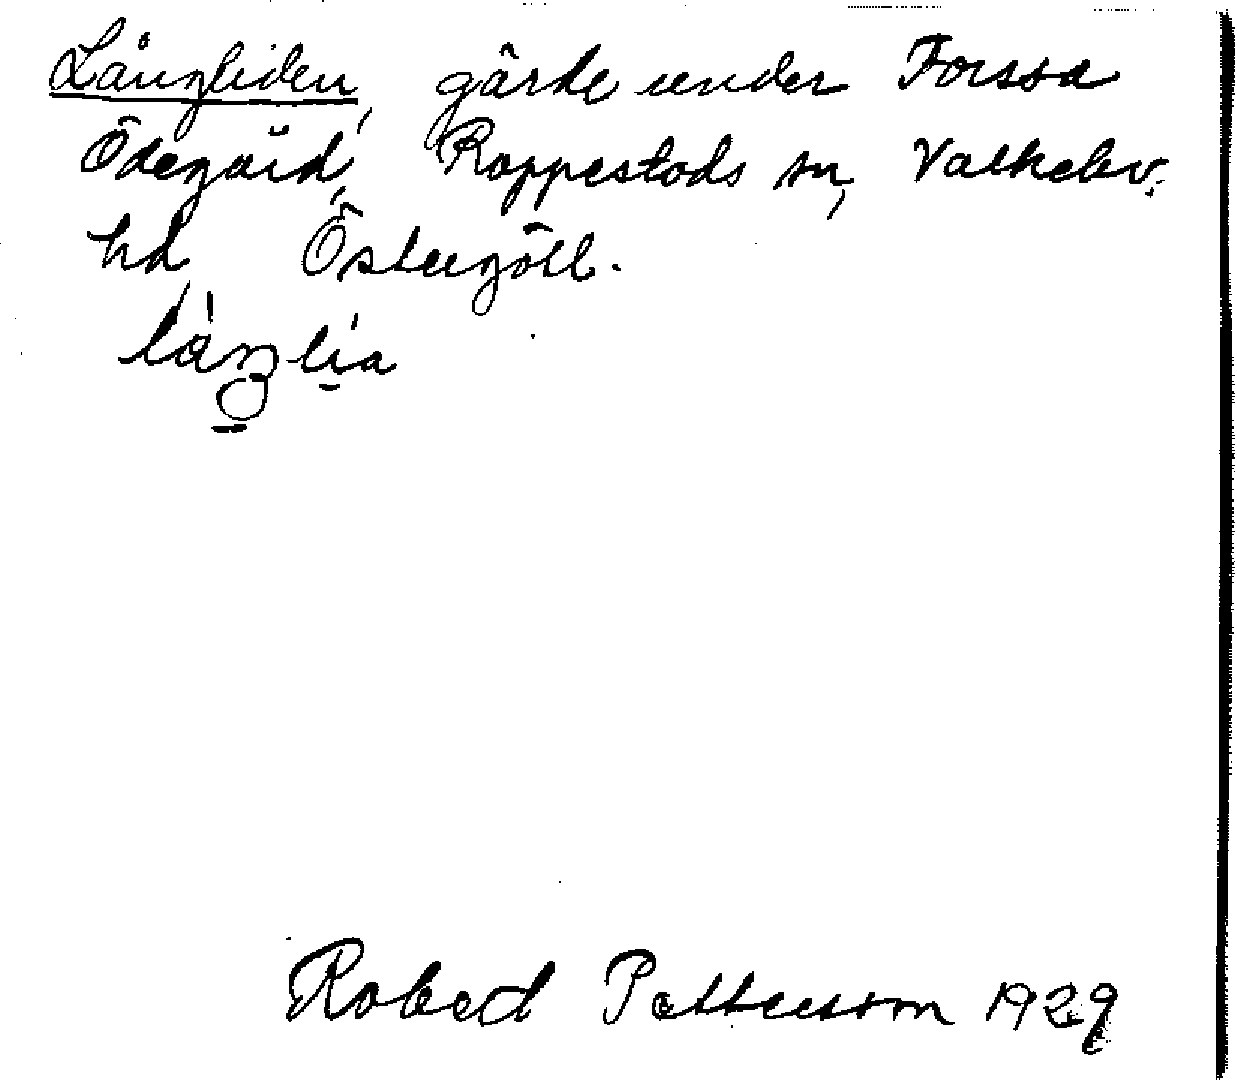 Långliden, gärde under Forssa
Ödegård, Rappestads sn, Valkebo
hd, Östergötl.
Robert Pettersson 1929